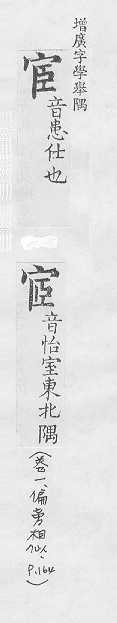 增廣字學舉隅
宦音患仕也
宧音怡室東北隅(卷一、偏旁相似、P.164)